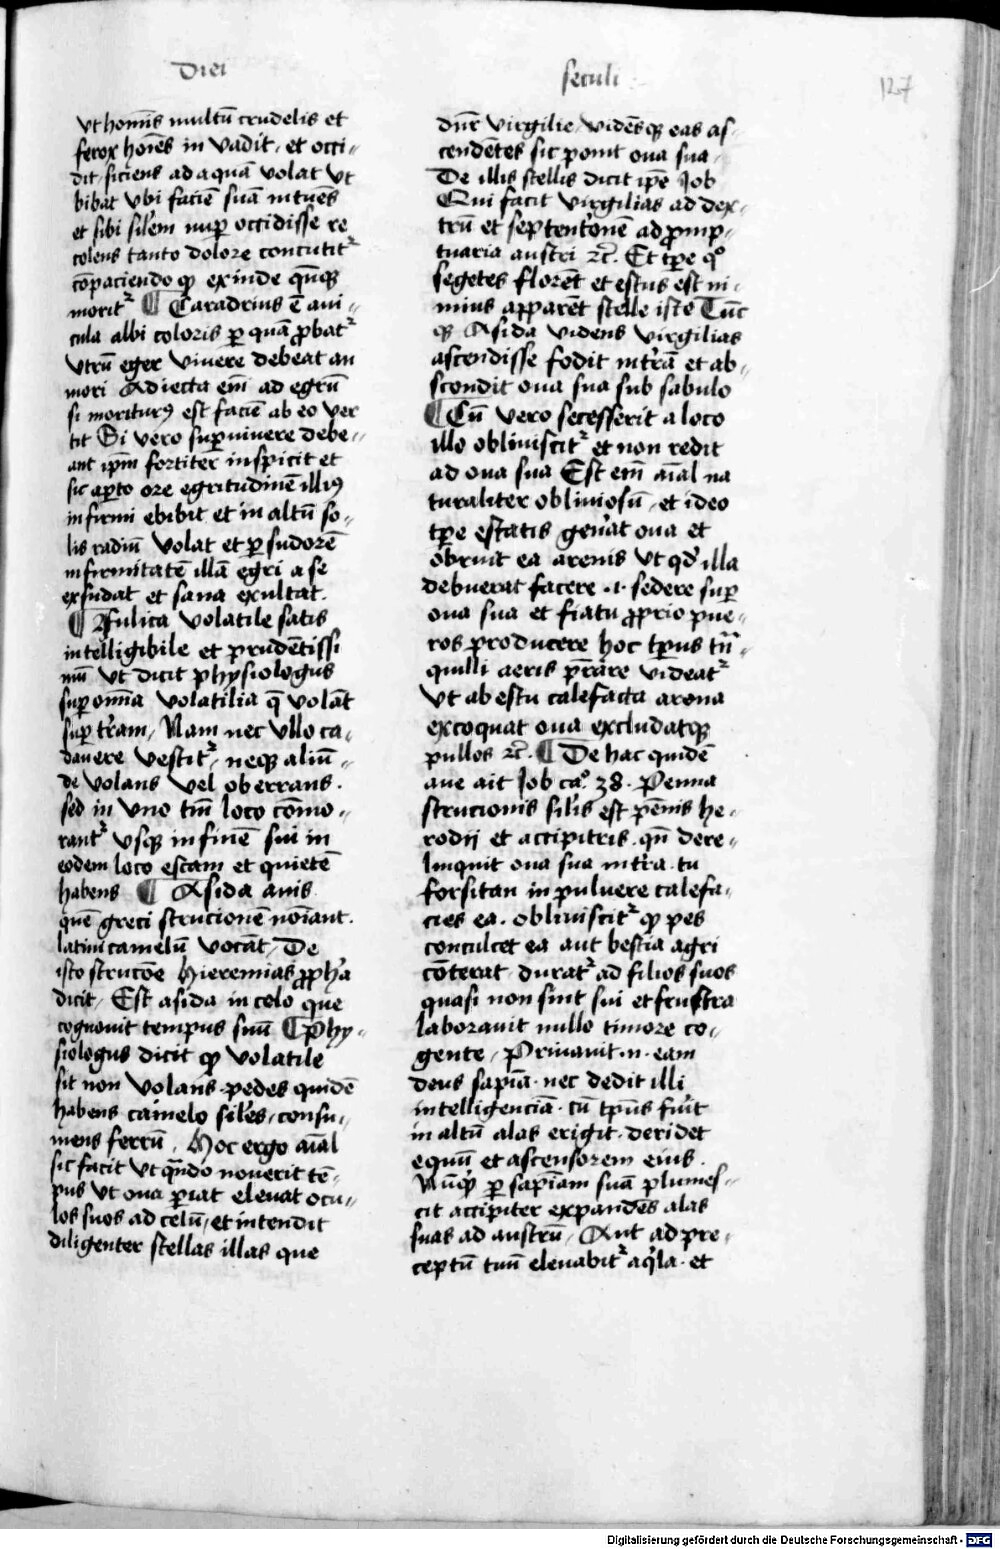 Diei
seculi
127
vt homīs multū crudelis et
ferox hoīes in vadit, et occi-
dit, siciens ad aquā volat vt
bibat vbi faciē suā intuēs
et sibi silēm nuꝑ occidisse re
colens tanto dolore concutitᷣ
cōpaciendo qꝫ exinde qn̄qꝫ
moritᷣ ¶ Caradrius ē aui-
cula albi coloris ꝑ quā ꝓbatᷣ
vtrū eger viuere debeat an
mori Adiecta em̄ ad egrū
si moriturꝰ est faciē ab eo ver
tit Si vero suꝑuiuere debe-
ant ip̄m fortiter inspicit et
sic aꝑto ore egritudinē illiꝰ
infirmi ebibit et in altū so-
lis radiū volat et ꝑ sudorē
infirmitatē illā egri a se
exsudat et sana exultat.
¶ Fulica volatile satis
intelligibile et prudētissi
mū vt dicit physiologus
suꝑ omīa volatilia q̄ volāt
suꝑ tr̄am, Nam nec vllo ca-
dauere vestitᷣ, neqꝫ aliū-
de volans vel oberrans.
sed in vno tm̄ loco cōmo-
rantᷣ vsqꝫ in finē sui in
eodem loco escam et quietē
habens ¶ Asida auis
quē greci strucionē noīant.
latini camelū vocāt, De
isto strucōe hieremias ꝓph̄a
dicit, Est asida in celo que
cognouit tempus suū ¶ Phy-
siologus dicit qꝫ volatile
sit non volans. pedes quidē
habens camelo siles, consu-
mens ferrū. Hoc ergo aīal
sic facit vt qn̄do nouerit tē-
pus vt oua ꝑiat eleuat ocu-
los suos ad celū, et intendit
diligenter stellas illas que
dnr̄ virgilie, vidēsqꝫ eas as-
cendētes sic ponit oua sua,
De illis stellis dicit ip̄e Job
Qui facit virgilias ad dex-
trū et septentōnē ad ꝓmp-
tuaria austri ⁊c̄. Et tꝑe qͦ
segetes florēt et estus est ni-
mius apparēt stelle iste Tūc
qꝫ Asida videns virgilias
ascendisse fodit in tr̄a et ab-
scondit oua sua sub sabulo
¶ Cū vero secesserit a loco
illo obliuiscitᷣ et non redit
ad oua sua Est em̄ aīal na
turaliter obliuiosū, et ideo
tꝑe estatis gen̄at oua et
obruit ea arenis vt qd̄ illa
debuerat facere .i. sedere suꝑ
oua sua et fiatu ꝓprio pue-
ros producere hoc tp̄us trā-
quilli aeris p̄rare videatᷣ
vt ab estu calefacta arena
excoquat oua excludatqꝫ
pullos ⁊c̄. ¶ De hac quidē
aue ait Job caͦ. 38. Penna
strucionis silis est pēnis he-
rodij et accipitris. qn̄ dere-
linquit oua sua in tr̄a. tu
forsitan in puluere calefa-
cies ea. obliuiscitᷣ qꝫ pes
conculcet ea aut bestia agri
cōterat duratᷣ ad filios suos
quasi non sint sui et frustra
laborauit nullo timore co-
gente, Priuauit .n. eam
deus sapīa. nec dedit illi
intelligenciā. cū tp̄us fūit
in altū alas erigit. deridet
equū et ascensorem eius.
Nūqd̄ ꝑ sapīam suā plumes-
cit accipiter expandēs alas
suas ad austrū, Aut ad pre-
ceptū tuū eleuabitᷣ aqͥla. et
Digitalisierung gefördert durch die Deutsche Forschungsgemeinschaft - DFG